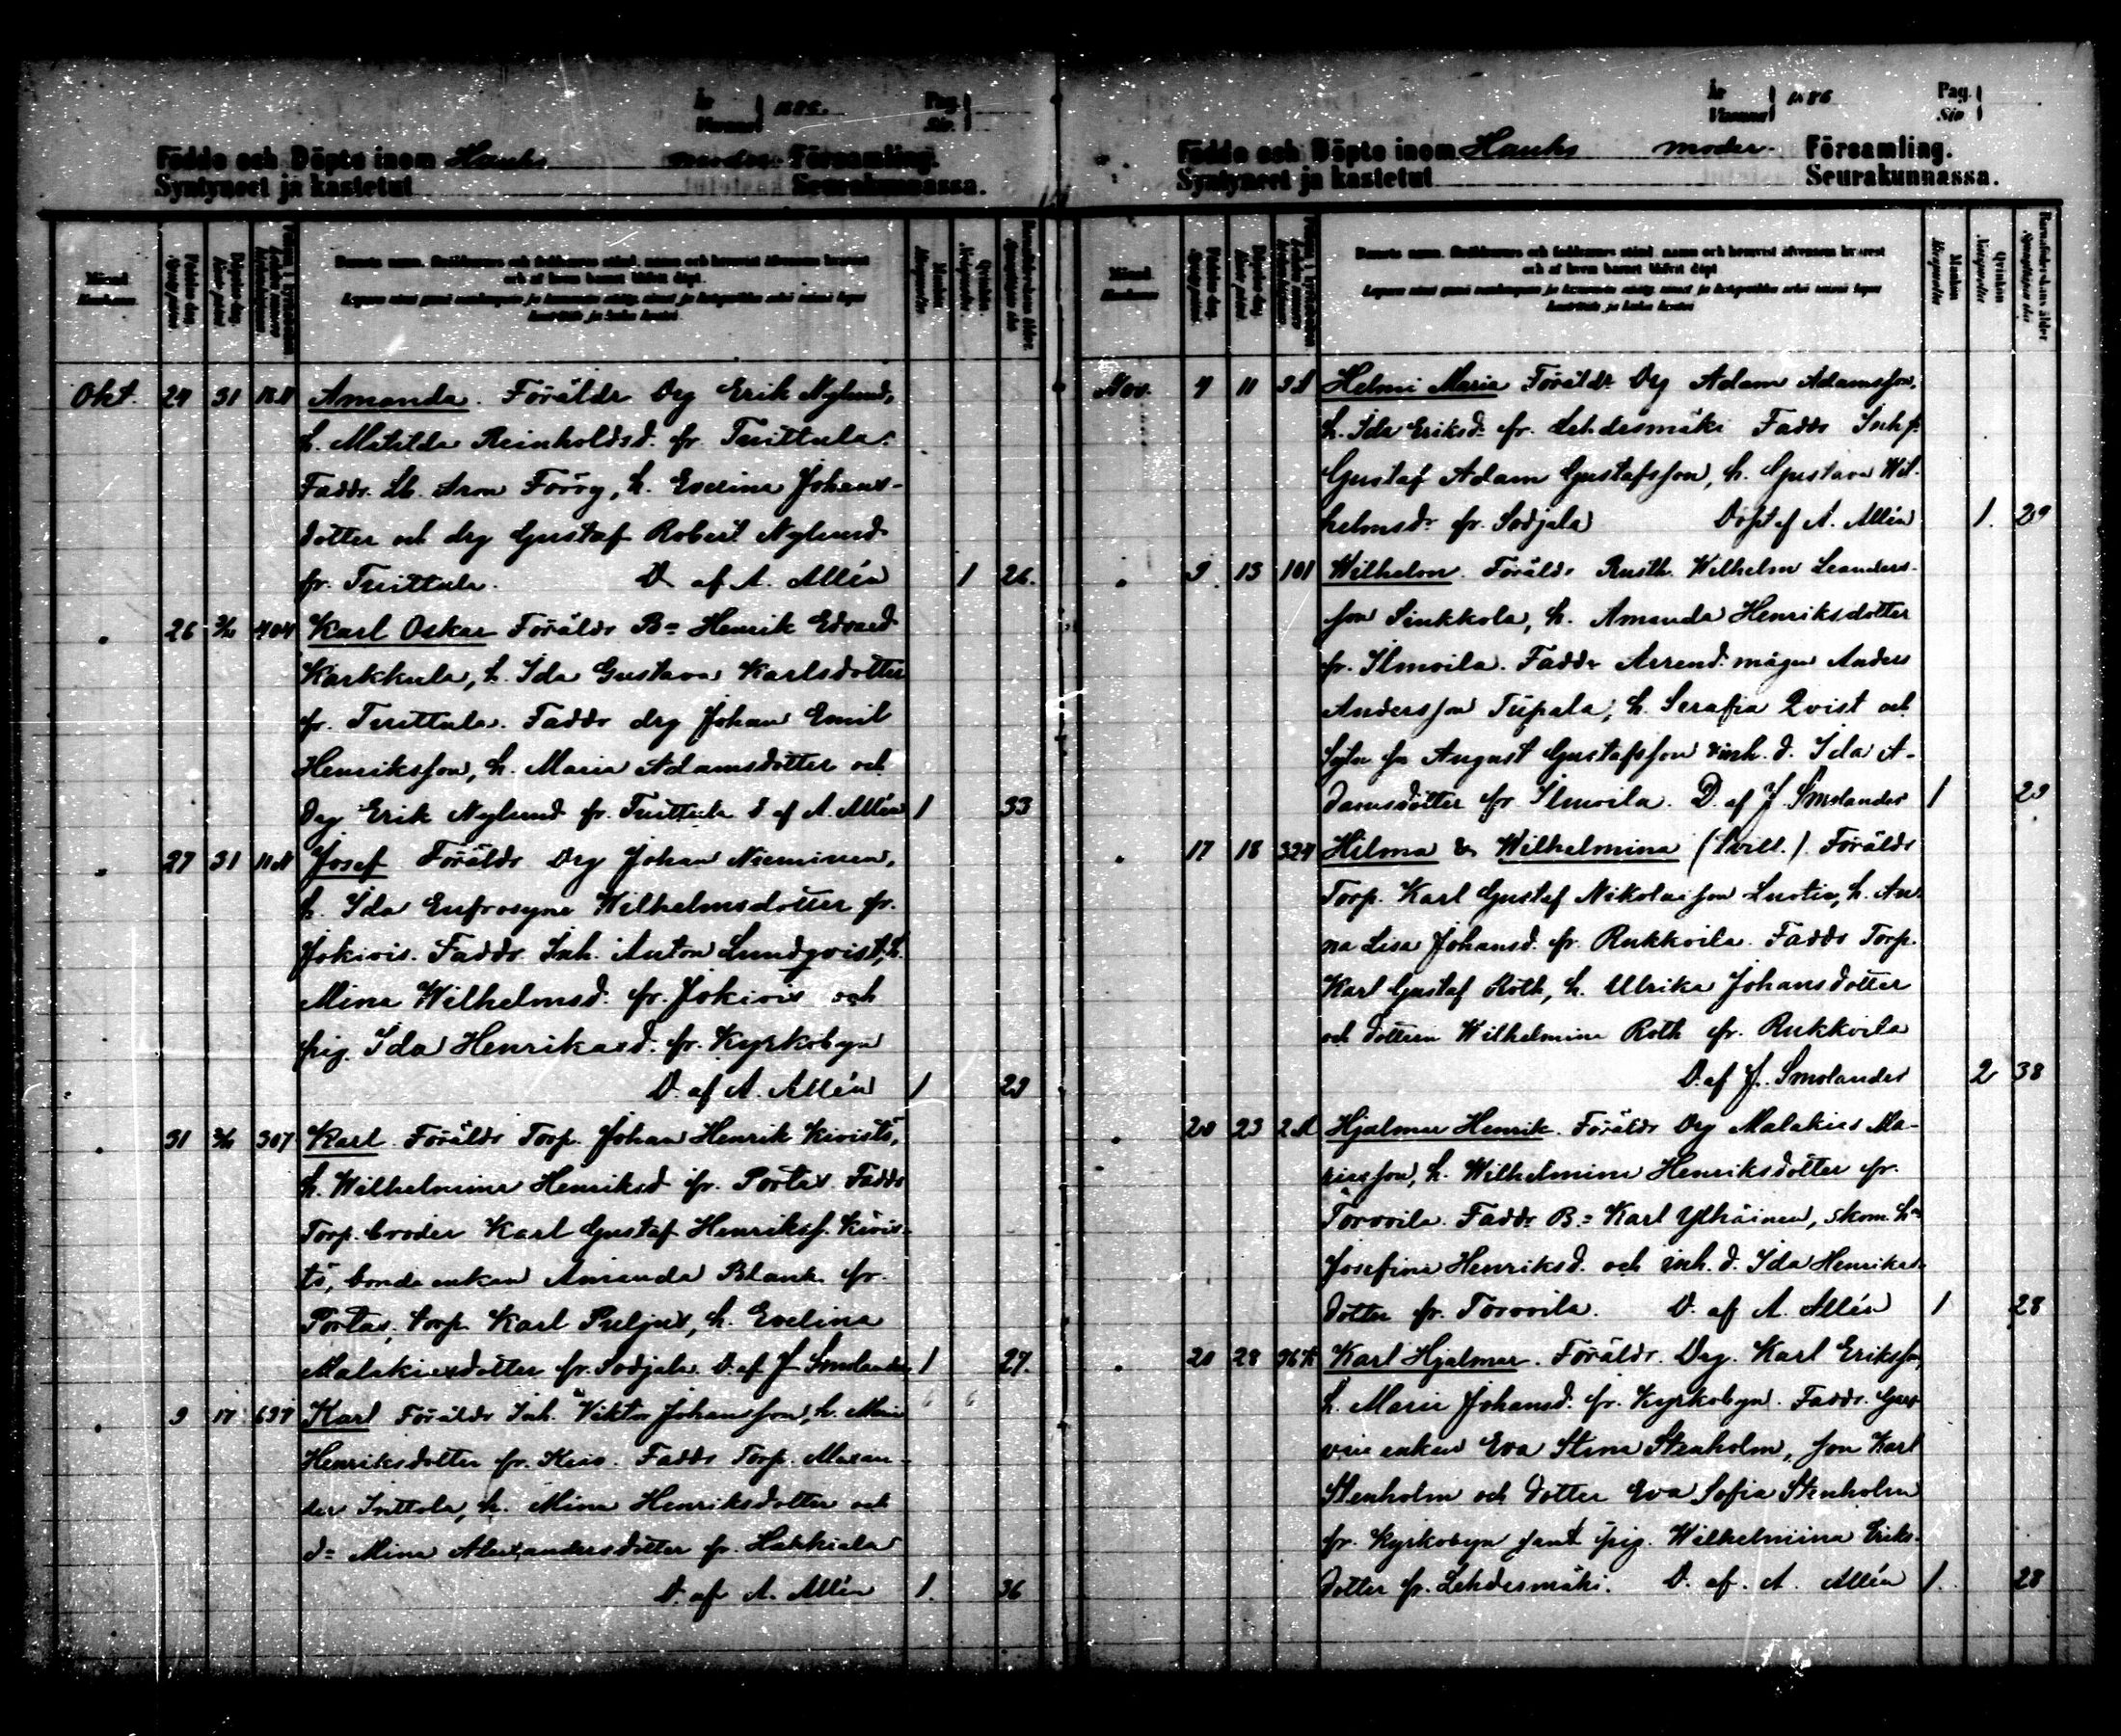 År
Vuonna 1886.
Pag.
Siv.
Födde och Döpte inom Hauho moder- Församling.
Syntyneet ja kastetut Seurakunnassa.
Okt. 24 31 Amanda. Föräldr Drg Erik Nylund,
h. Matilda Reinholdsd. fr. Turittula.
Faddr. Lb. Aron Forrg, h. Evelina Johans-
dotter och drg Gustaf Robert Nylund
fr. Turittula. D. af A. Allén 1 26.
26 404 Karl Oskar Föräldr Bn Henrik Edvard
Karkkula, h. Ida Gustava Karlsdotter
fr. Turittula. Faddr drg Johan Emil
Henriksson, h. Maria Adamsdotter och
Drg Erik Nylund fr. Turittula D af A. Allén 1 33
27 31 Josef Föräldr Drg Johan Nieminen,
h. Ida Eufrosyne Wilhelmsdotter fr.
Jokivis. Faddr Inh. Anton Lundqvist, h.
Mina Wilhelmsd. fr. Jokivis och
pig. Ida Henriksd. fr. Kyrkobyn
D. af A. Allén 1 29
31 307 Karl Föräldr Torp. Johan Henrik Kivistö,
h. Wilhelmina Henriksd fr. Portas Faddr
Torp. broder Karl Gustaf Henrikss. Kivis-
tö, bonde enkan Amanda Blank fr.
Portas, torp. Karl Puljus, h. Evelina
Malakiasdotter fr. Sodjala. D. af J. Smolander 1 27.
9 17 697 Karl Föräldr Inh. Viktor Johansson, h. Maria
Henriksdotter fr. Keis. Faddr Torp. Alexan-
der Inttola, h. Mina Henriksdotter och
dr Mina Alexandersdotter fr. Hakkiala
D. af A. Allén 1. 36
År
Vuonna 1886
Pag.
Siv
Födde och Döpte inom Hauho moder- Församling.
Syntyneet ja kastetut Seurakunnassa.
Nov. 4 11 Helmi Maria Föräldr Drg Adam Adamsson,
h. Ida Eriksd. fr. Lehdesmäki Faddr Inh.
Gustaf Adam Gustafsson, h. Gustava Wil-
helmsdr fr. Sodjala Döpt af A. Allén 1. 29
9 13 101 Wilhelm. Föräldr Rusth. Wilhelm Leanders-
son Sinkkola, h. Amanda Henriksdotter
fr. Ilmoila. Faddr Arrend. mågen Anders
Andersson Tupala, h. Serafia Qvist och
August Gustafsson inh. d. Ida A-
damsdotter fr. Ilmoila. D. af J. Smolander 1 29
17 18 324 Hilma & Wilhelmina (tvill.). Föräldr
Torp. Karl Gustaf Nikolaisson Lustia, h. An-
na Lisa Johansd. fr. Rukkoila. Faddr Torp.
Karl Gustaf Roth, h. Ulrika Johansdotter
och dottern Wilhelmina Roth fr. Rukkoila
D. af J. Smolander 2 38
20 23 Hjalmar Henrik. Föräldr Drg Malakias Ma-
kiasson, h. Wilhelmina Henriksdotter fr.
Torvoila. Faddr Bn Karl Ylhäinen, skom. hu
Josefina Henriksd. och inh. d. Ida Henriks-
dotter fr. Torvoila. D. af A. Allén 1 28
20 28 Karl Hjalmar. Föräldr. Drg. Karl Eriksson,
h. Maria Johansd. fr. Kyrkobyn. Faddr.
enkan Eva Stina Stenholm, son Karl
Stenholm och dotter Eva Sofia Stenholm
fr. Kyrkobyn samt pig. Wilhelmina Eriks-
dotter fr. Lehdesmäki. D. af. A. Allén 1. 28